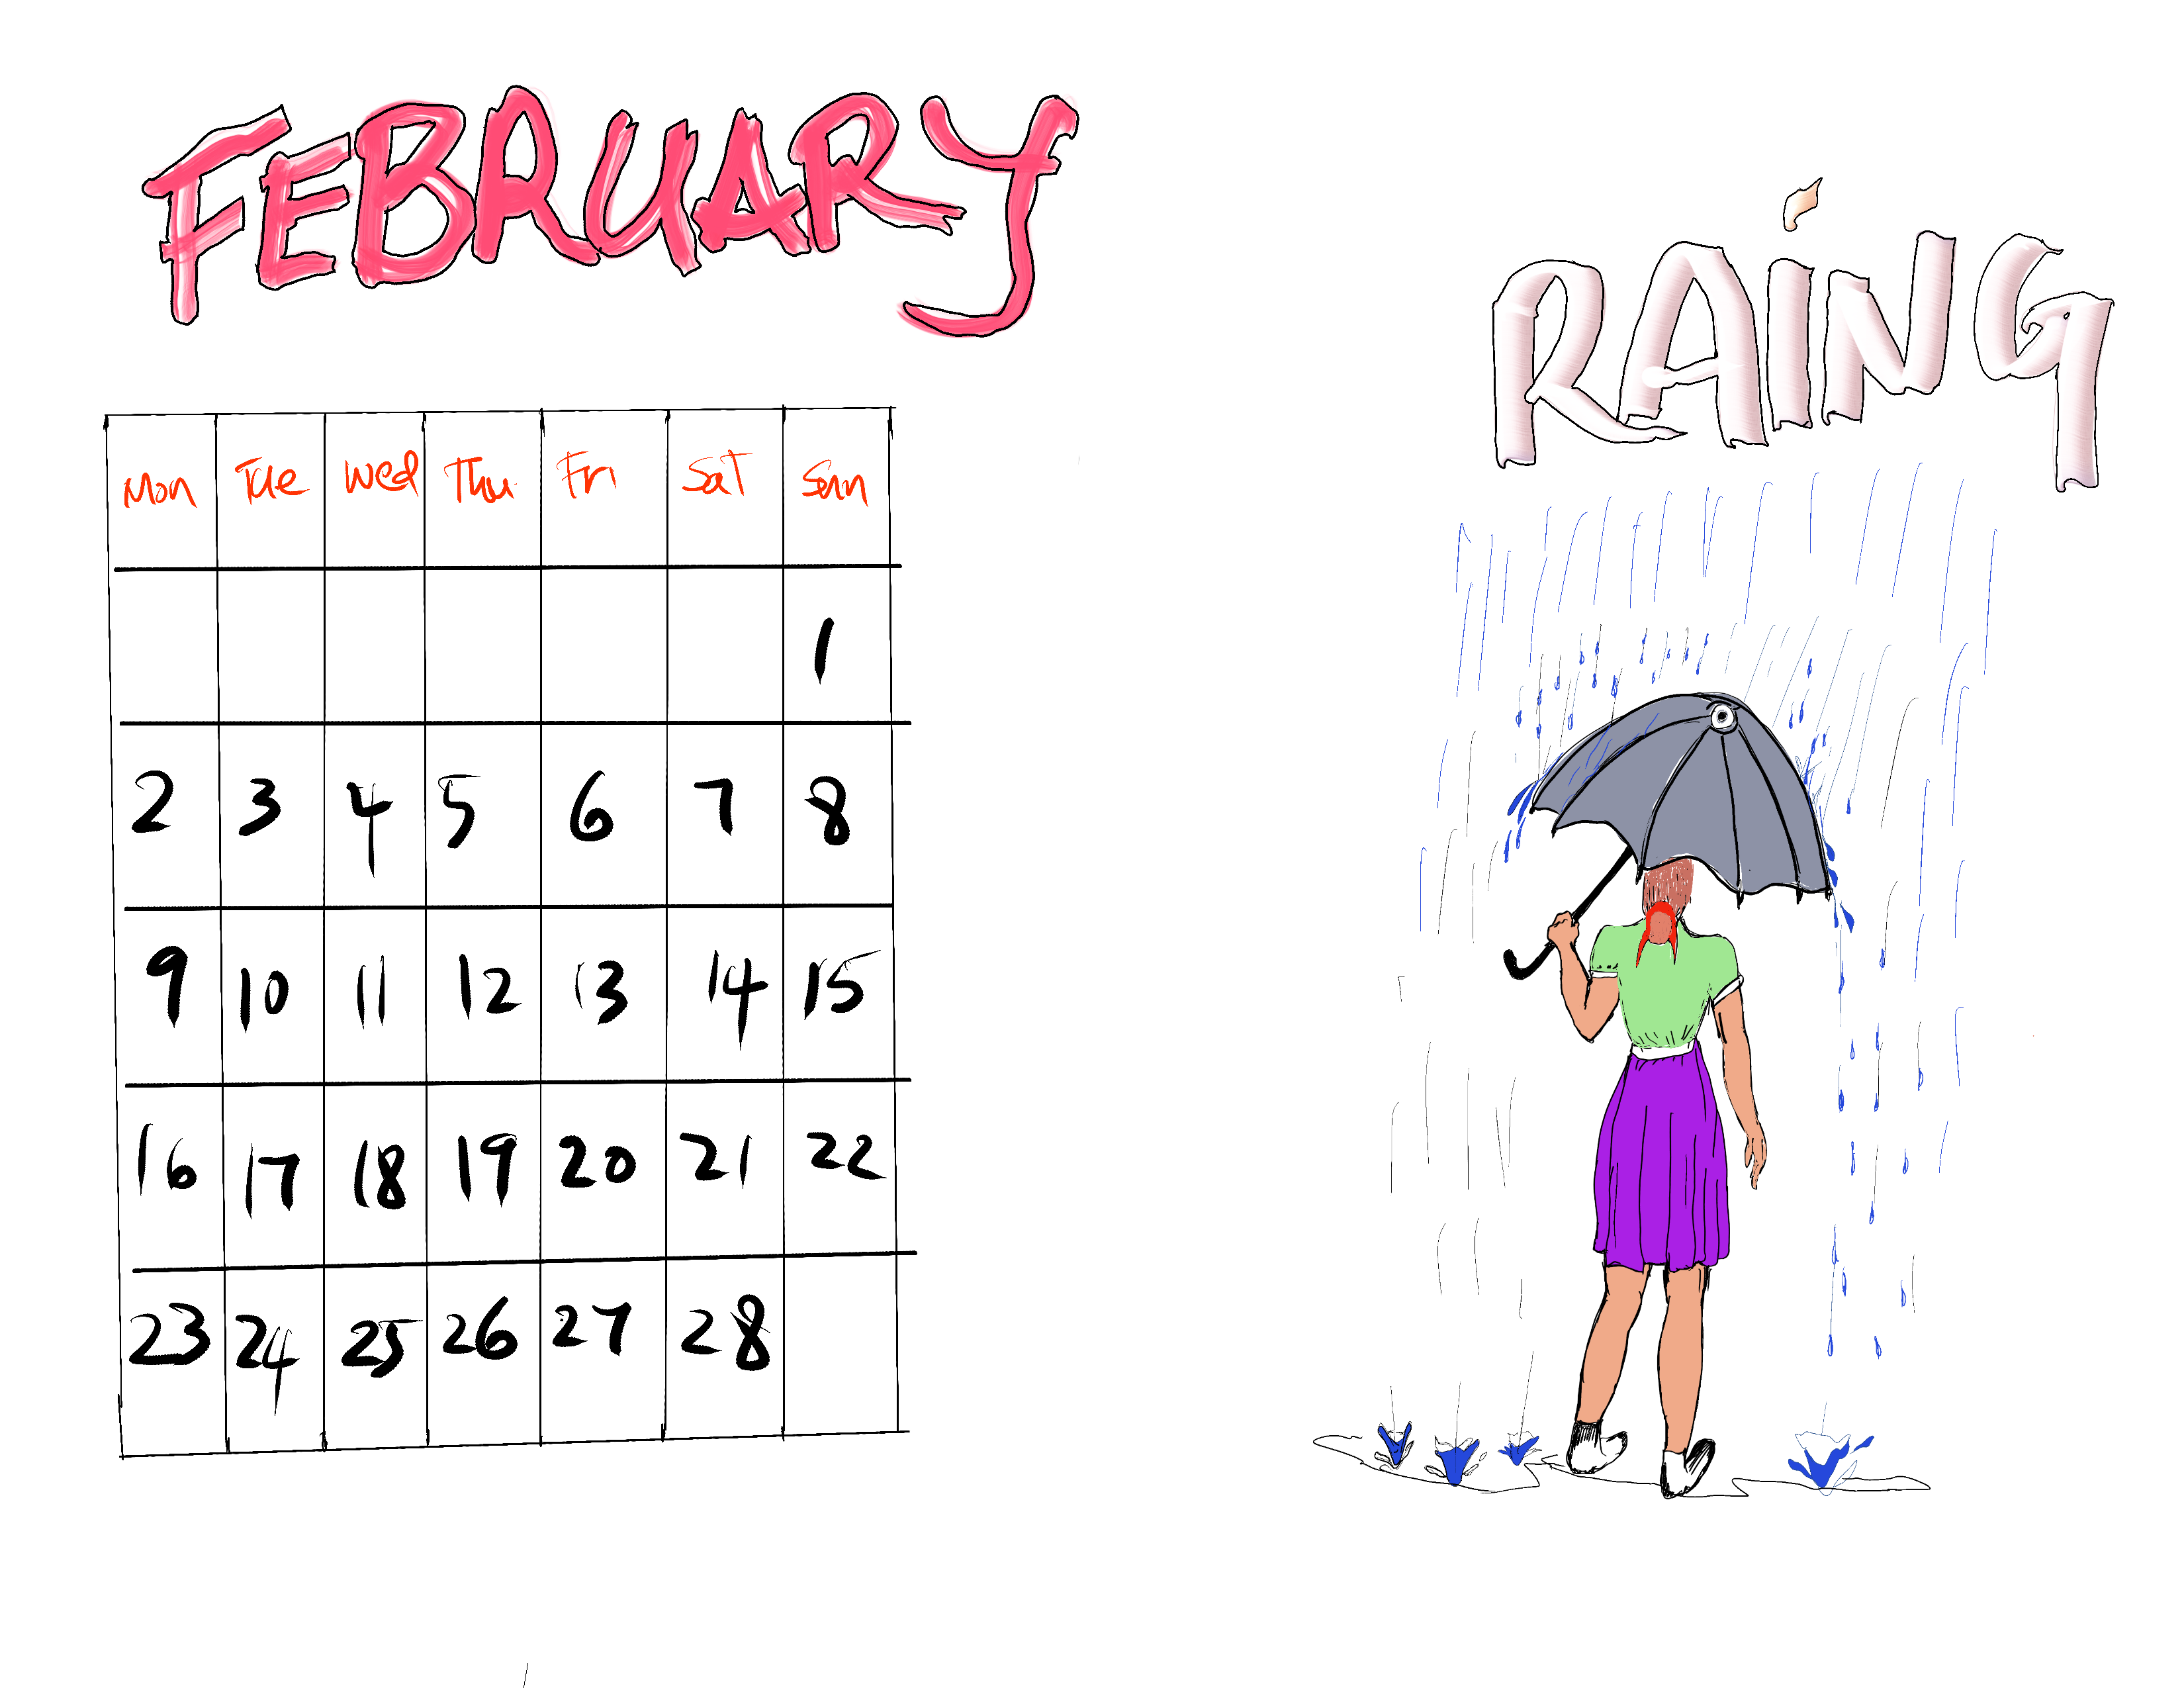 FEBRUARY
RAING
Mon Tue Wed Thu Fri Sat Sun
1
2 3 4 5 6 7 8
9 10 11 12 13 14 15
16 17 18 19 20 21 22
23 24 25 26 27 28